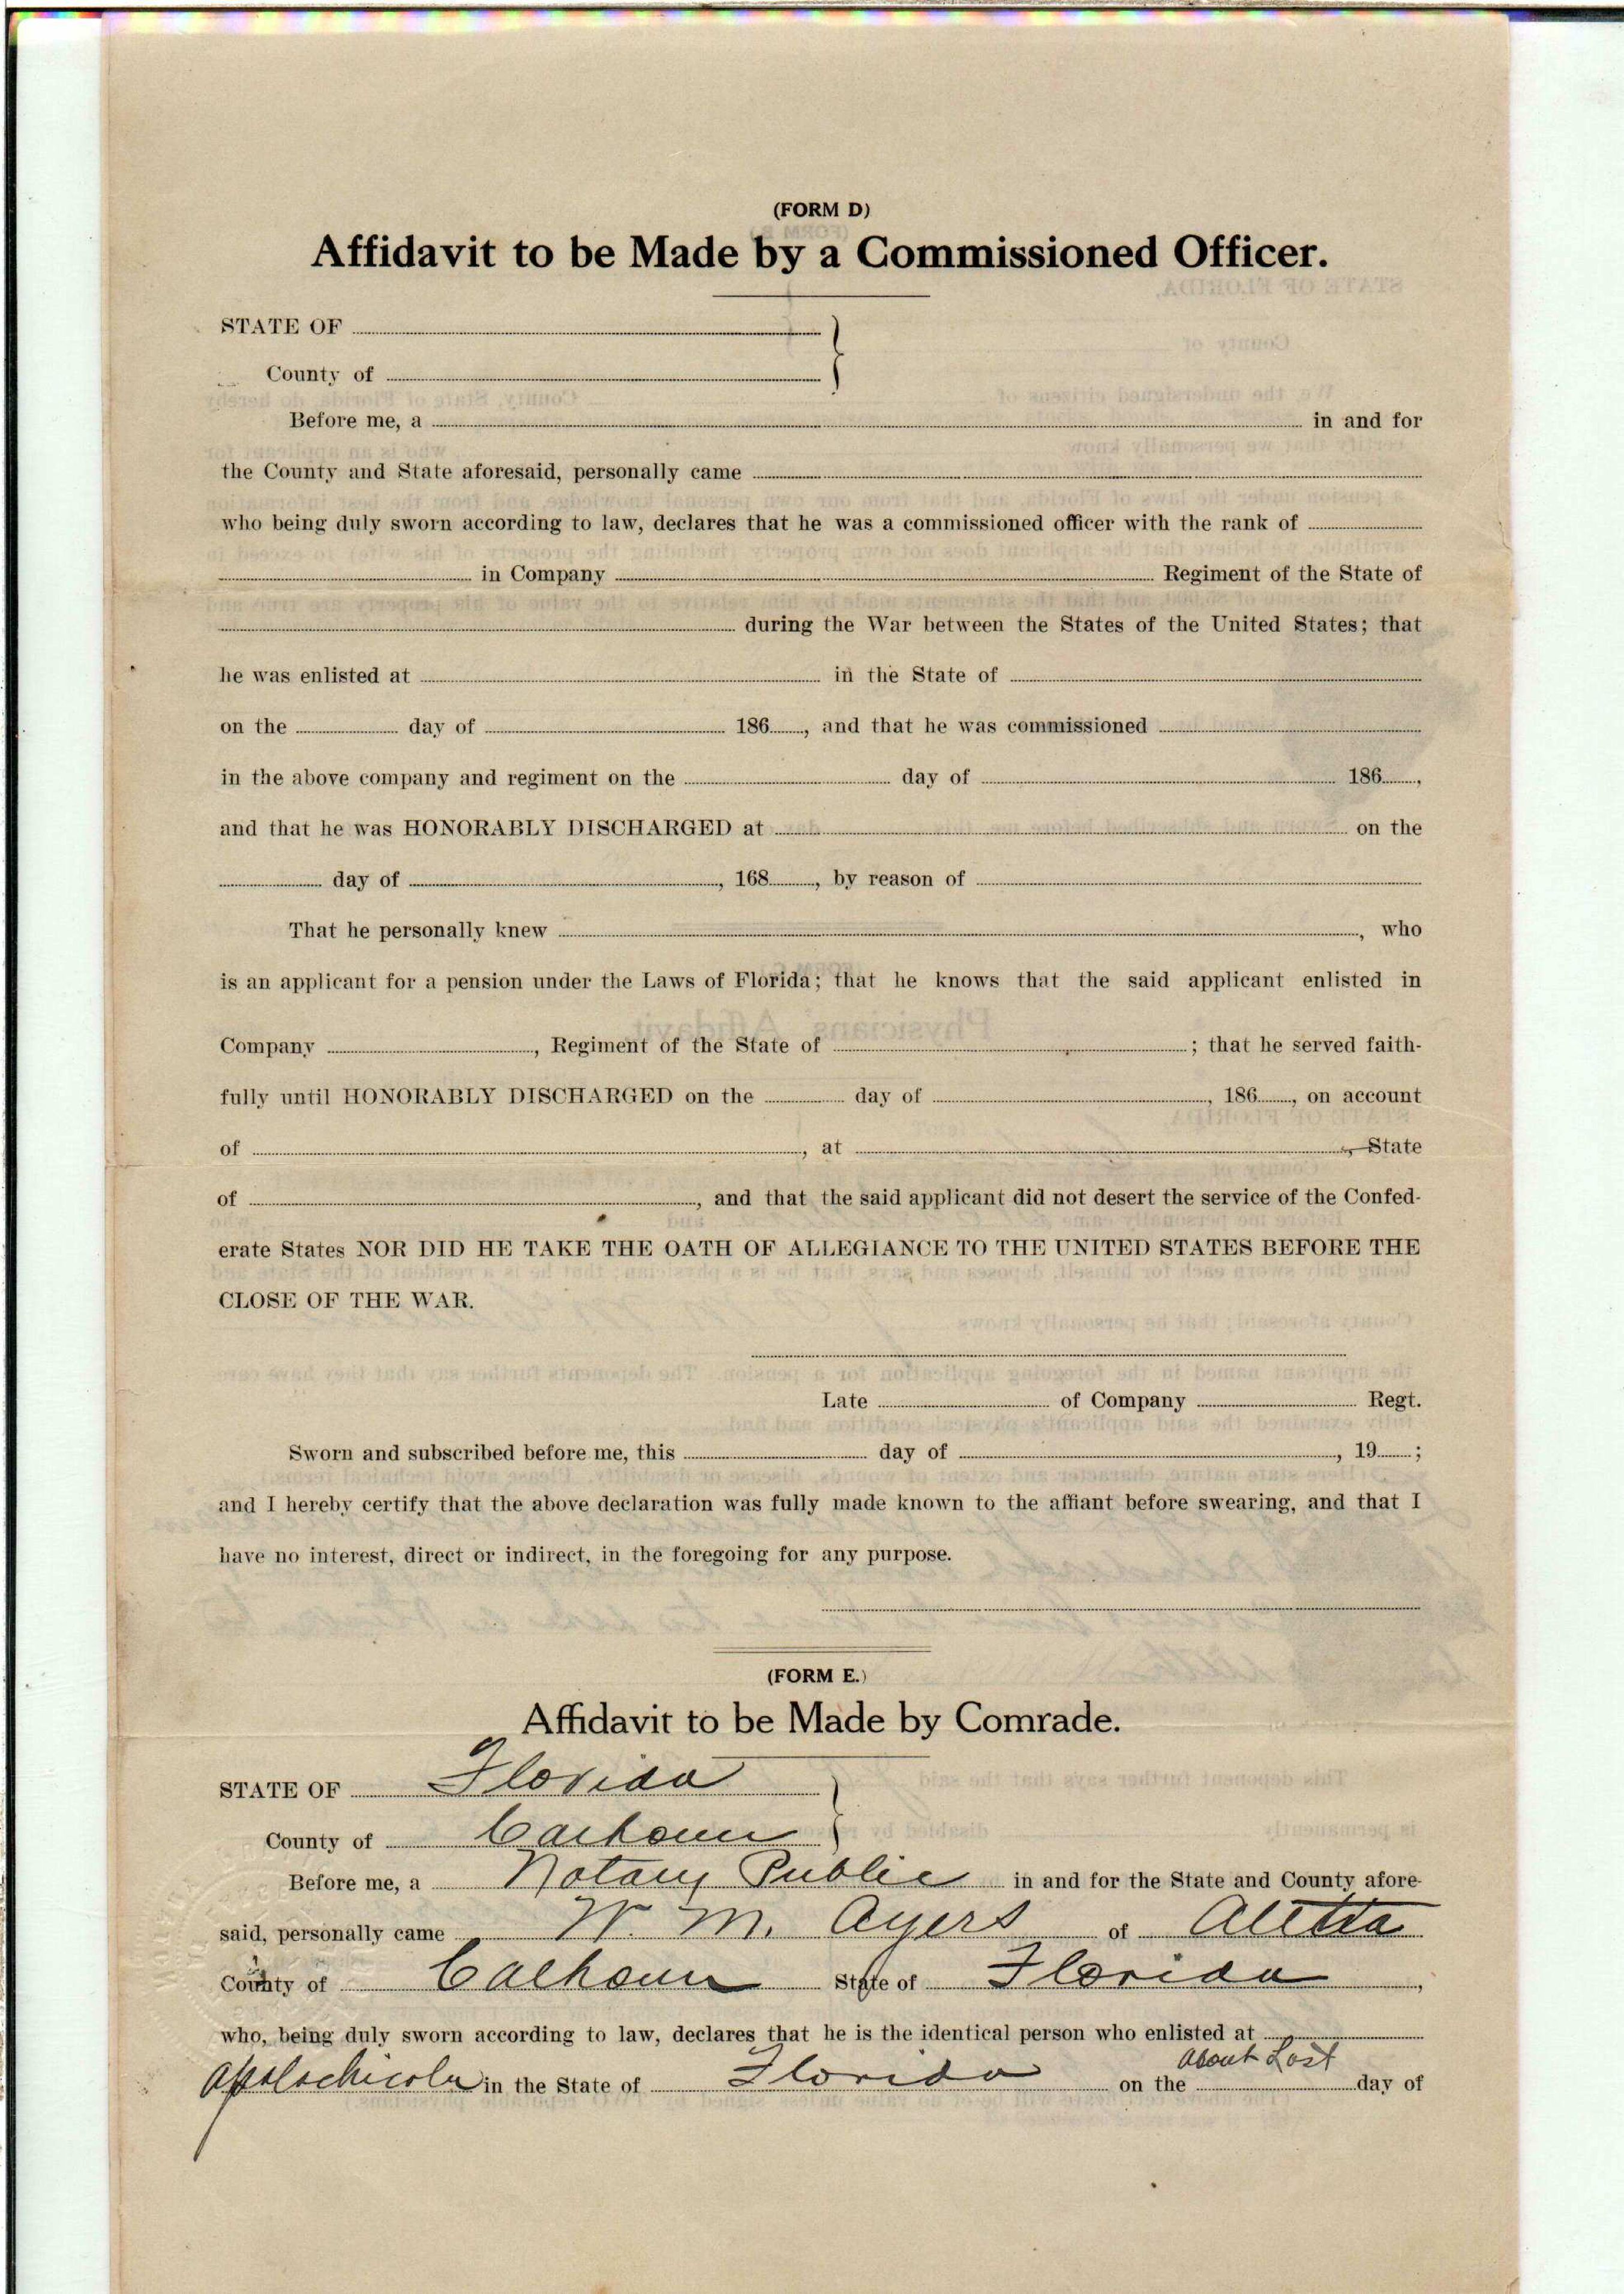 (FORM D)
Affidavit to be Made by a Commissioned Officer.
STATE OF
County of
Before me, a in and for
the County and State aforesaid, personally came
who being duly sworn according to law, declares that he was a commissioned officer with the rank of
in Company Regiment of the State of
during the War between the States of the United States; that
he was enlisted at in the State of
on the day of 186, and that he was commissioned
in the above company and regiment on the day of 186,
and that he was HONORABLY DISCHARGED at on the
day of , 168, by reason of
That he personally knew , who
is an applicant for a pension under the Laws of Florida; that he knows that the said applicant enlisted in
Company , Regiment of the State of ; that he served faith-
fully until HONORABLY DISCHARGED on the day of , 186, on account
of , at , State
of , and that the said applicant did not desert the service of the Confed-
erate States NOR DID HE TAKE THE OATH OF ALLEGIANCE TO THE UNITED STATES BEFORE THE
CLOSE OF THE WAR.
Late of Company Regt.
Sworn and subscribed before me, this day of , 19 ;
and I hereby certify that the above declaration was fully made known to the affiant before swearing, and that I
have no interest, direct or indirect, in the foregoing for any purpose.
(FORM E.)
Affidavit to be Made by Comrade.
STATE OF Florida
County of Calhoun
Before me, a Notary Public in and for the State and County afore-
said, personally came W. M. Ayers of
County of Calhoun State of Florida,
who, being duly sworn according to law, declares that he is the identical person who enlisted at
Apalachicola in the State of Florida on the About Last day of